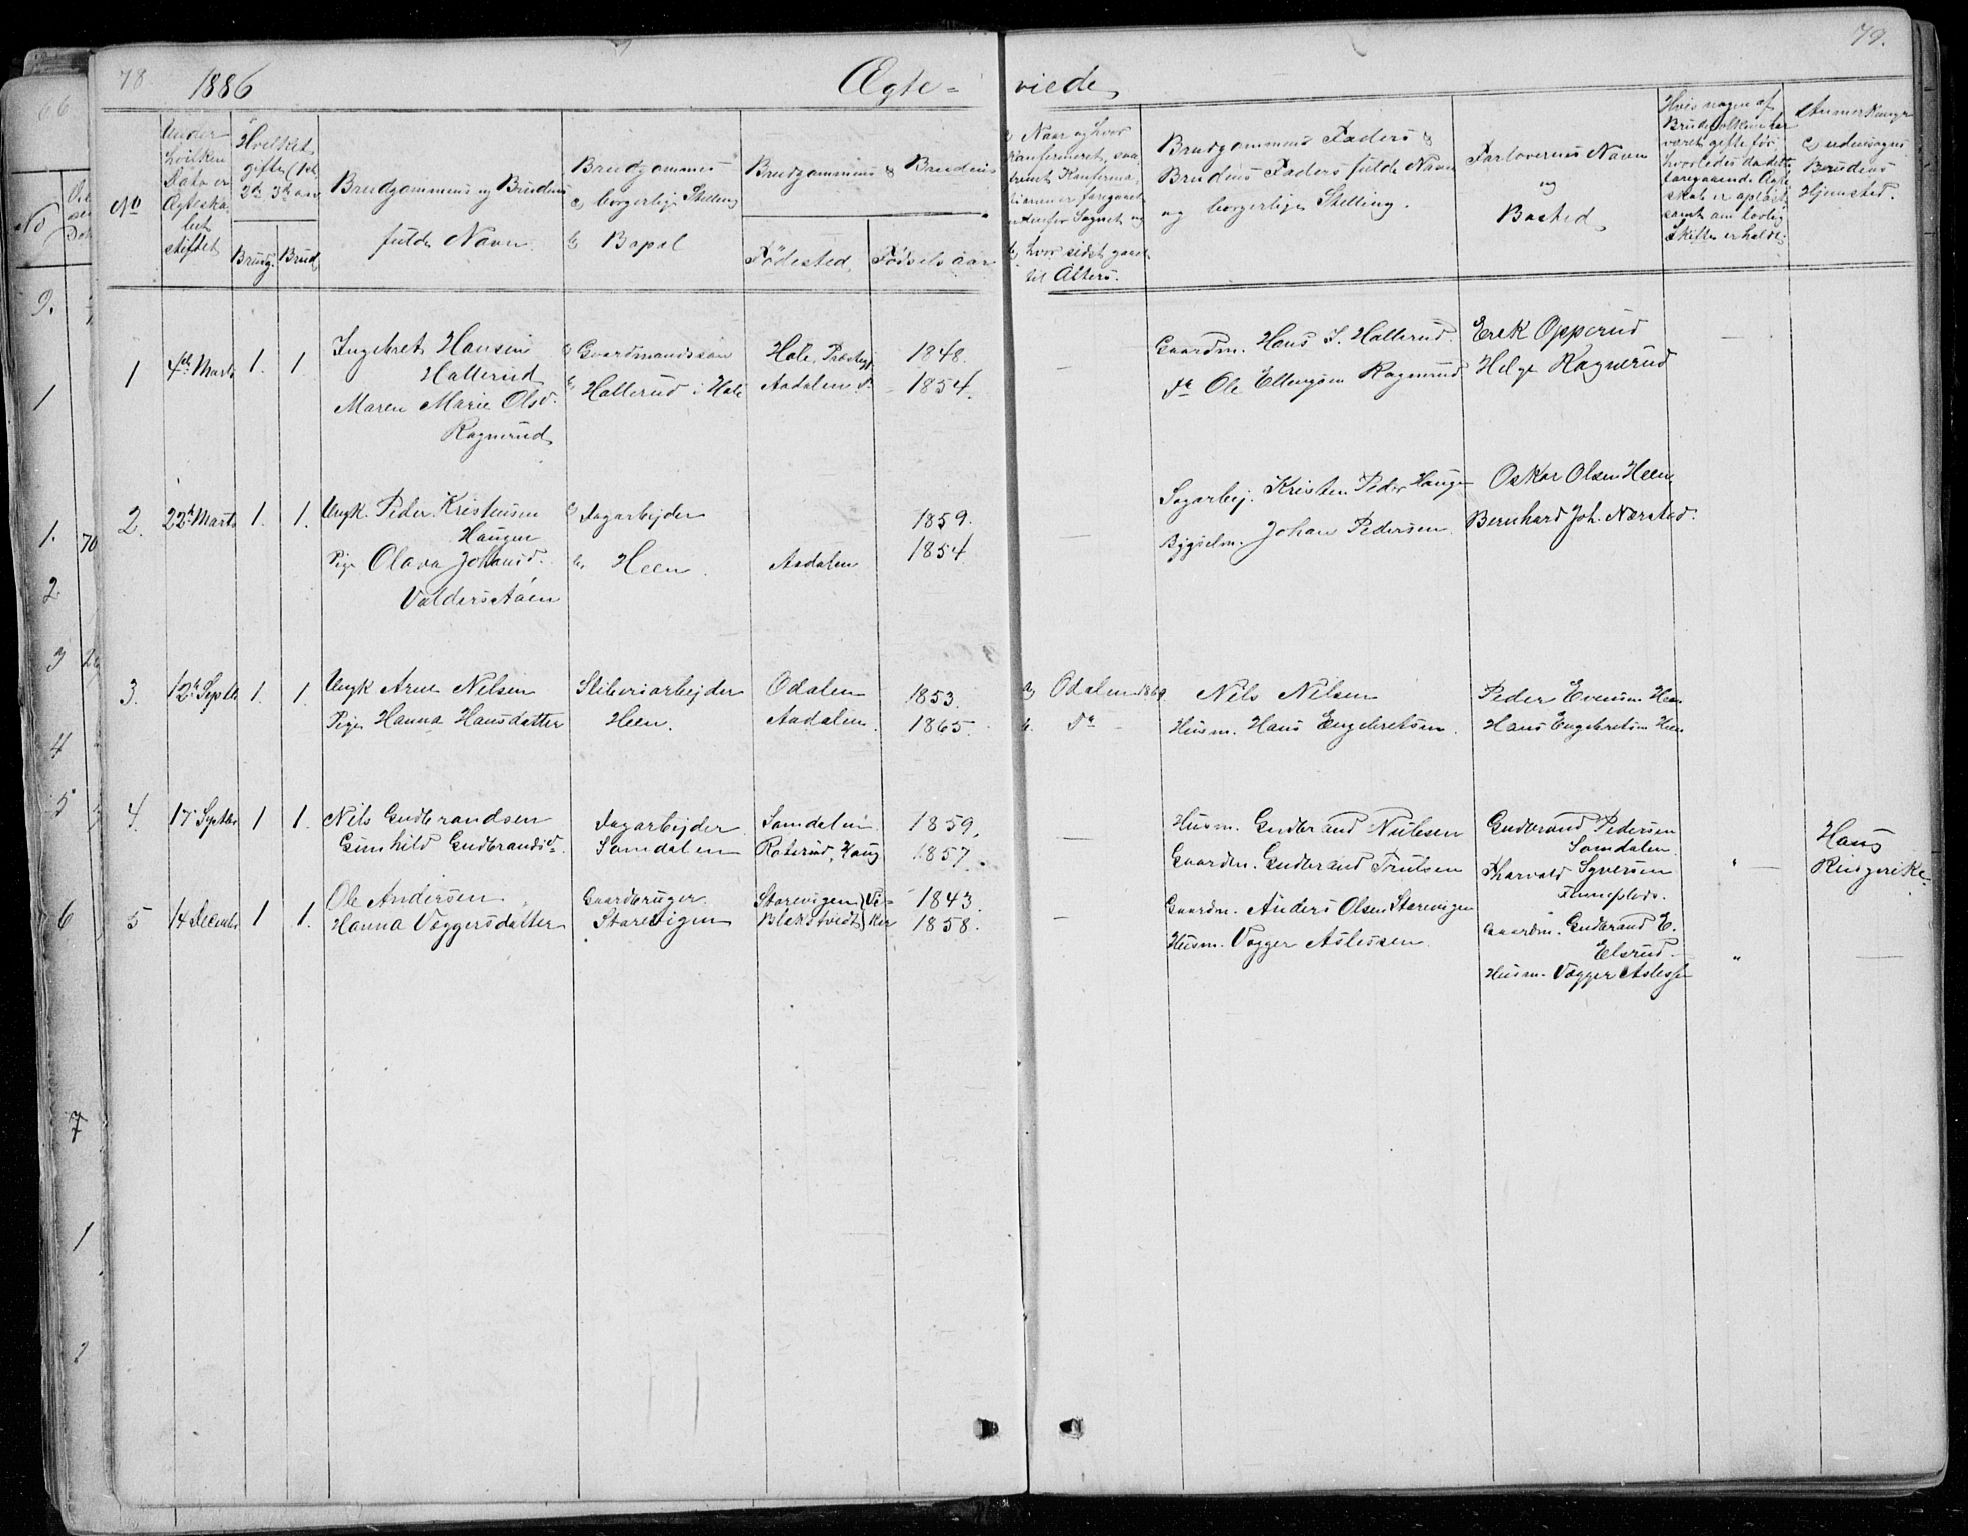 78.
1886
Ægte-
viede
79.
No
Under hvilken Dato er Ægteska-bet stiftet
Hvilket gifte (1ste 2det 3die osv
Brudg. Brud
Brudgommens og Brudens fulde Navn
Brudgommens
a, borgerlige Stilling
b, Bopæl
Brudgommens & Brudens
Fødested, Fødselsaar
a, Naar og hvor
konfirmeret, saa
b, hvor sidst gaaet
til Alters.
Brudgommens Faders &
Brudens Faders fulde Navn
og borgerlige Stilling.
Forloverens Navn
og
Bosted
Hvis nogen af
Brudefolkene har
været gifte før,
hvorledes da dette
foregaaende Ægte
skab er opløst
samt om lovlig
Skifte er holdt.
Anmerkninger
Brudens
Hjemsted.
1
4de Marts
1. 1
Ingebret Hansen
Hallerud
Maren Marie Olsd.
Ragnerud
a, Gaardmandssøn
b, Hallerud i Hole
Hole Præstegj
Aadalen
1848.
1854.
—
Gaardm. Hans I. Hallerud.
do Ole Ellingsen Ragnerud
Erik Opperud
Helge Ragnerud
—
2.
22de Marts
1. 1.
Ungk. Peder Kristensen
Haugen
Pige Olava Johansd.
Valdersstøen
a, Dagarbejder
b, Heen.
Aadalen
1859.
1854
—
Sagarbej. Kristen Peder Haugen
Bygselm. Johan Pedersen.
Oskar Olsen Heen
Bernhard Joh. Nærstad.
3.
12te Septbr
1. 1.
Ungk Arne Nilsen
Pige Hanna Hansdatter
Sliberiarbejder
Heen.
Odalen
Aadalen.
1853.
1865.
a, Odalen 1869
b. do -
Nils Nilsen
Husm. Hans Engebretsen.
Peder Evensen Heen
Hans Engebretsen Heen
4.
17 Septbr
1 1.
Nils Gudbrandsen
Gunhild Gudbrandsd.
Dagarbejder
Somdalen
Somdalen
Roterud, Haug
1859.
1857.
—
Husm. Gudbrand Nilsen
Gaardm. Gudbrand Trulsen
Gudbrand Pedersen
Somdalen.
Thorvald Syversen
"
—
Haug
Ringerike.
5
14 December
1 1.
Ole Andersen
Hanna Vaggersdatter
Gaardbruger
Storevigen
Storevigen ) Vi-
Blakstvedt ) ker
1843.
1858.
—
Gaardm. Anders Olsen Storevigen
Husm. Vagger Aslesen.
Gaardm. Gudbrand E.
Elsrud
Husm. Vagger Aslesen
"
—
66
No
9.
1
1. 70
2
3
4
5
6
7
1
2